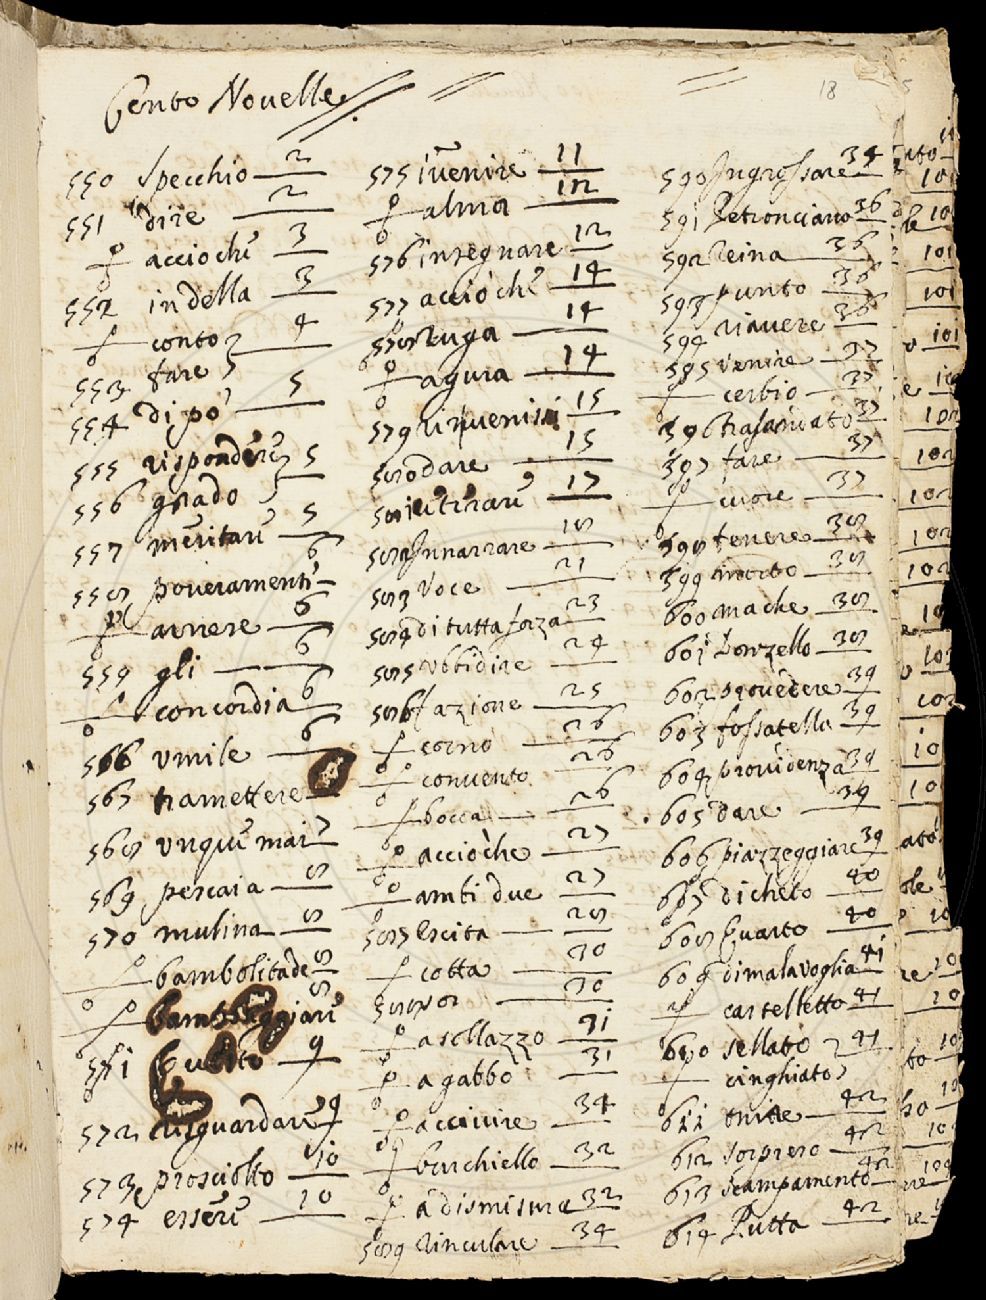 Cento Nouelle
18
550 Specchio 2
551 dire 2
acciochè 3
552 indella 3
conto 4
553 fare
554 di pò 5
555 rispondere 5
556 grado
557 meritare 5
558 poueramente 6
auuere 6
559 gli 6
concordia 6
566 vmile 6
567 tramettere
568 vnque mai 7
569 pescaia 8
570 mulina 8
bambolitade 8
bamboleggiare 8
571 9
572 risguardare 9
573 prosciolto 10
574 essere 10
575 iuenire 11
alma 12
576 insegnare 12
577 acciò che 14
578 Ruga 14
agura 14
579 Rinuenisi 15
580 dare 15
581 17
582 Innarrare 18
583 Voce 21
584 di tutta forza 23
585 Vbbidire 24
586 fazione 25
corno 26
conuento 26
bocca 26
acciòche 27
ambi due 27
587 Escita 28
cotta 30
588 30
a sollazzo 31
a gabbo 31
acciuire 34
burchiello 32
à dismisura 32
589 Rinculare 34
590 Ingrossare 34
591 Petronciano 36
592 Reina 36
593 punto 36
594 riauere 36
595 venire 37
cerbio 37
596 trasandato 37
597 fare 37
cuore 37
598 tenere 38
599 morto 38
600 ma che 38
601 Donzello 38
602 prouedere 39
603 fossatella 39
604 prouidenza 39
605 dare 39
606 piazzeggiare 39
607 dicheto 40
608 Quarto 40
609 di mala voglia 41
castelletto 41
610 sellato 41
cinghiato
611 42
612 Sorpreso 42
613 Scampamento 42
614 Putta 42